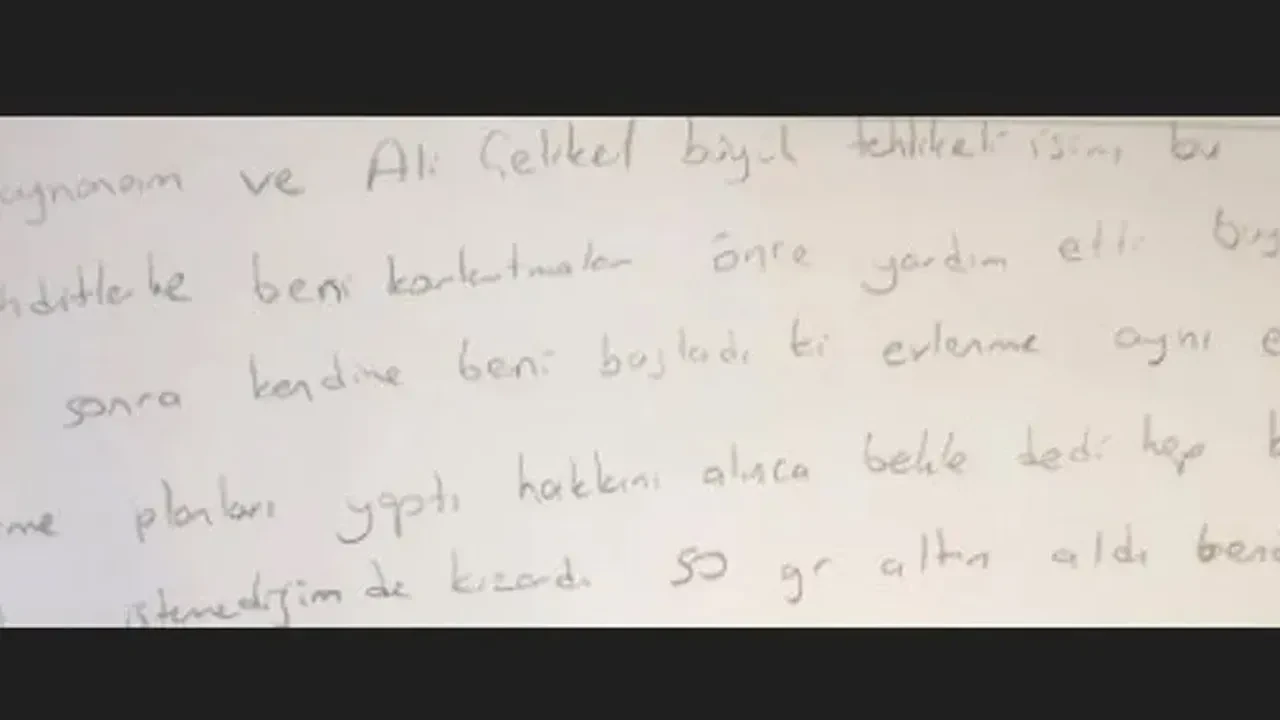 aynanam ve Ali Çelikel büyük tehlikeli isim, bu
hditlerle beni korkutmaları önce yardım etti
sonra kendine beni başladı ki evlenme aynı e
me planları yaptı hakkını alınca bekle dedi hep b
istemediğimde kızardı 50 gr altın aldı beni